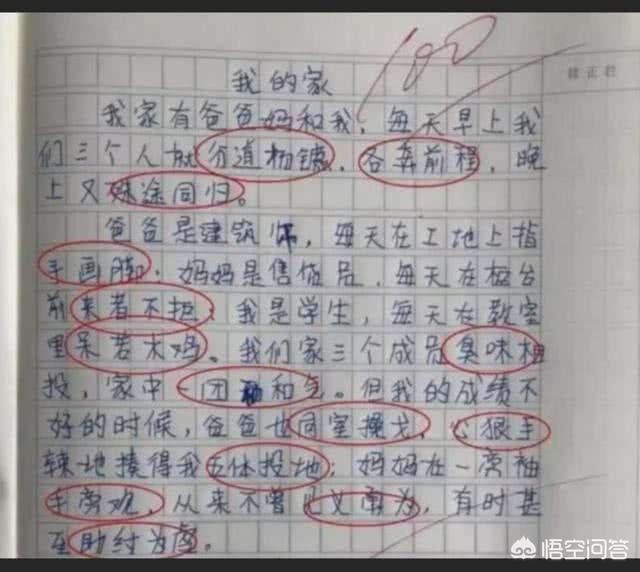 100
我的家
修正栏
我家有爸爸妈和我,每天早上我
们三个人就分道扬镳,各奔前程,晚
上又殊途同归。
爸爸是建筑师,每天在工地上指
手画脚;妈妈是售货员,每天在柜台
前来者不拒;我是学生,每天在教室
里呆若木鸡。我们家三个成员臭味相
投,家中一团和气。但我的成绩不
好的时候,爸爸也同室操戈,心狠手
辣地揍得我五体投地;妈妈在一旁袖
手旁观,从来不曾见义勇为,有时甚
至助纣为虐。
悟空问答